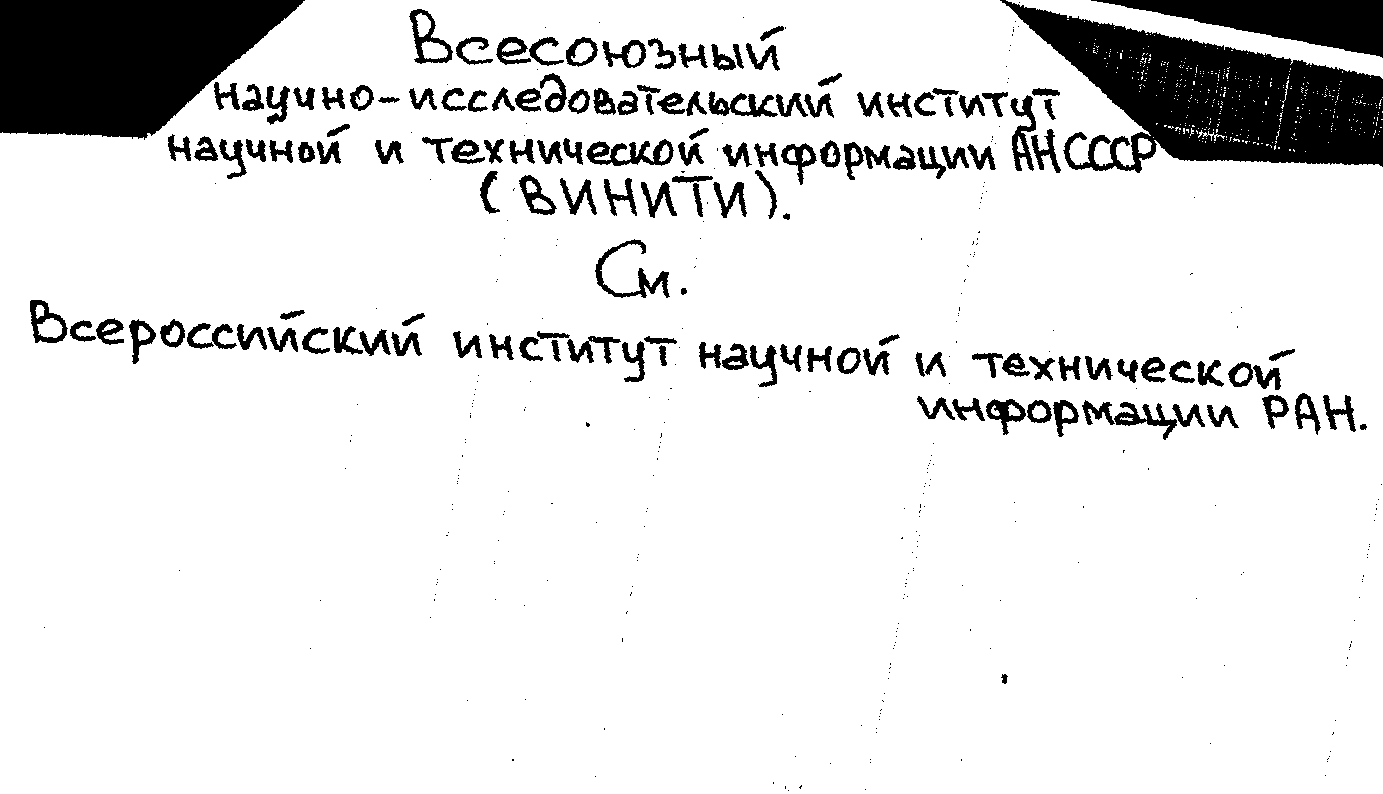 Всесоюзный
научно-исследовательский институт
научной и технической информации АН СССР
(ВИНИТИ).
См.
Всероссийский институт научной и технической
информации РАН.